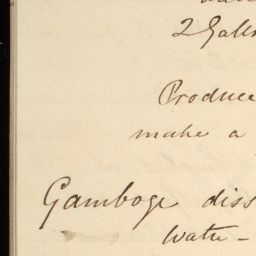 2 Galls
Produce
make a
Gamboge diss
Water -